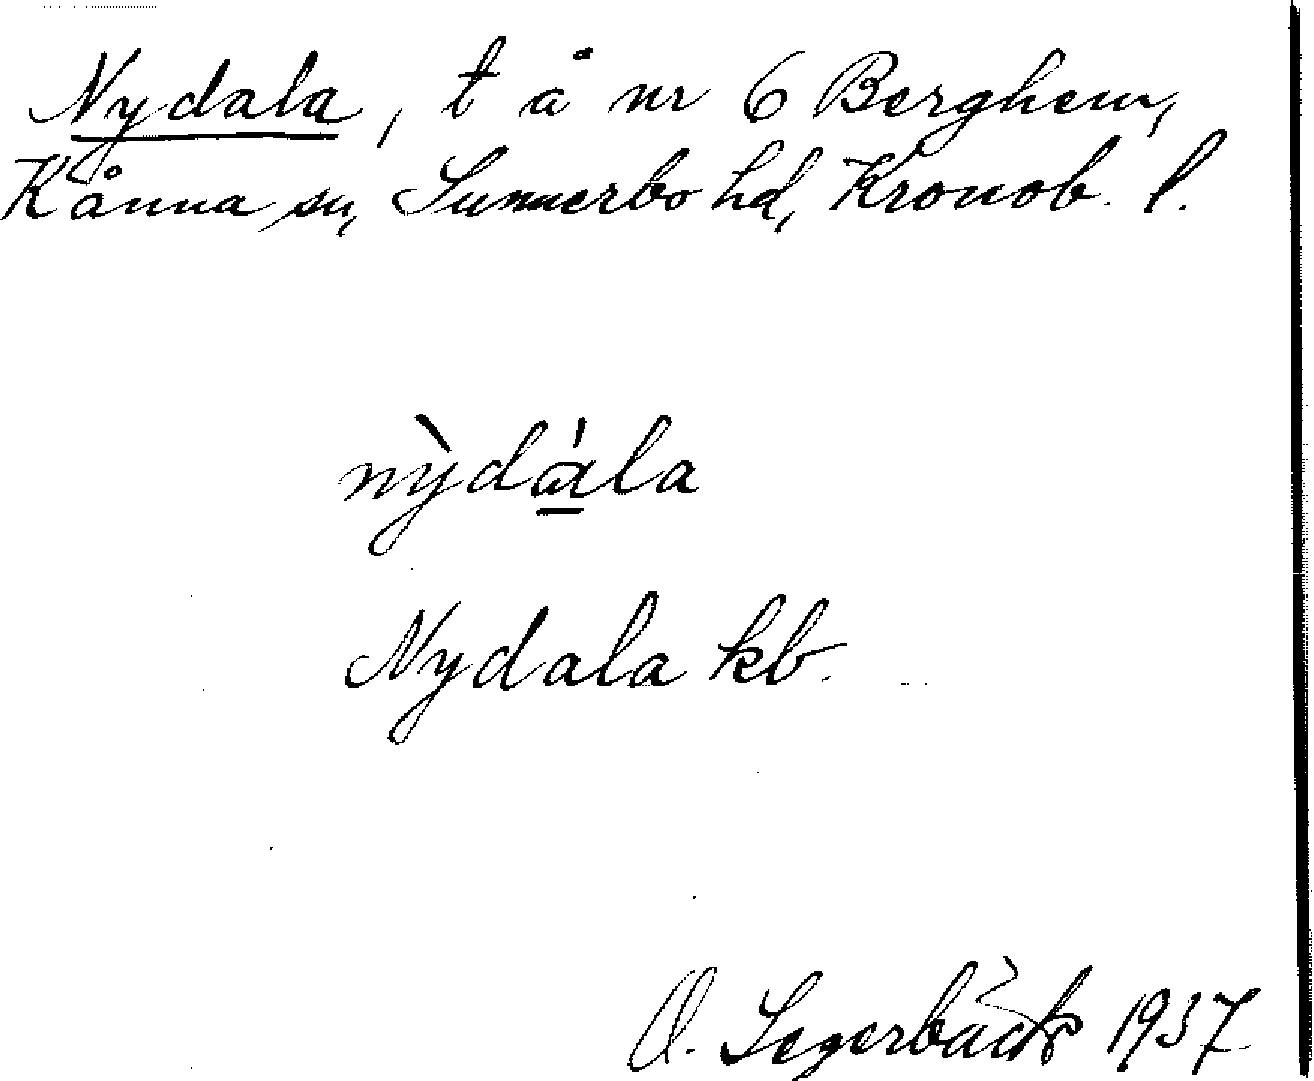 Nydala, t å nr 6 Berghem,
Kånna sn, Sunnerbo hd, Kronob. l.
nỳdála
Nydala kb.
O. Segerbäck 1937